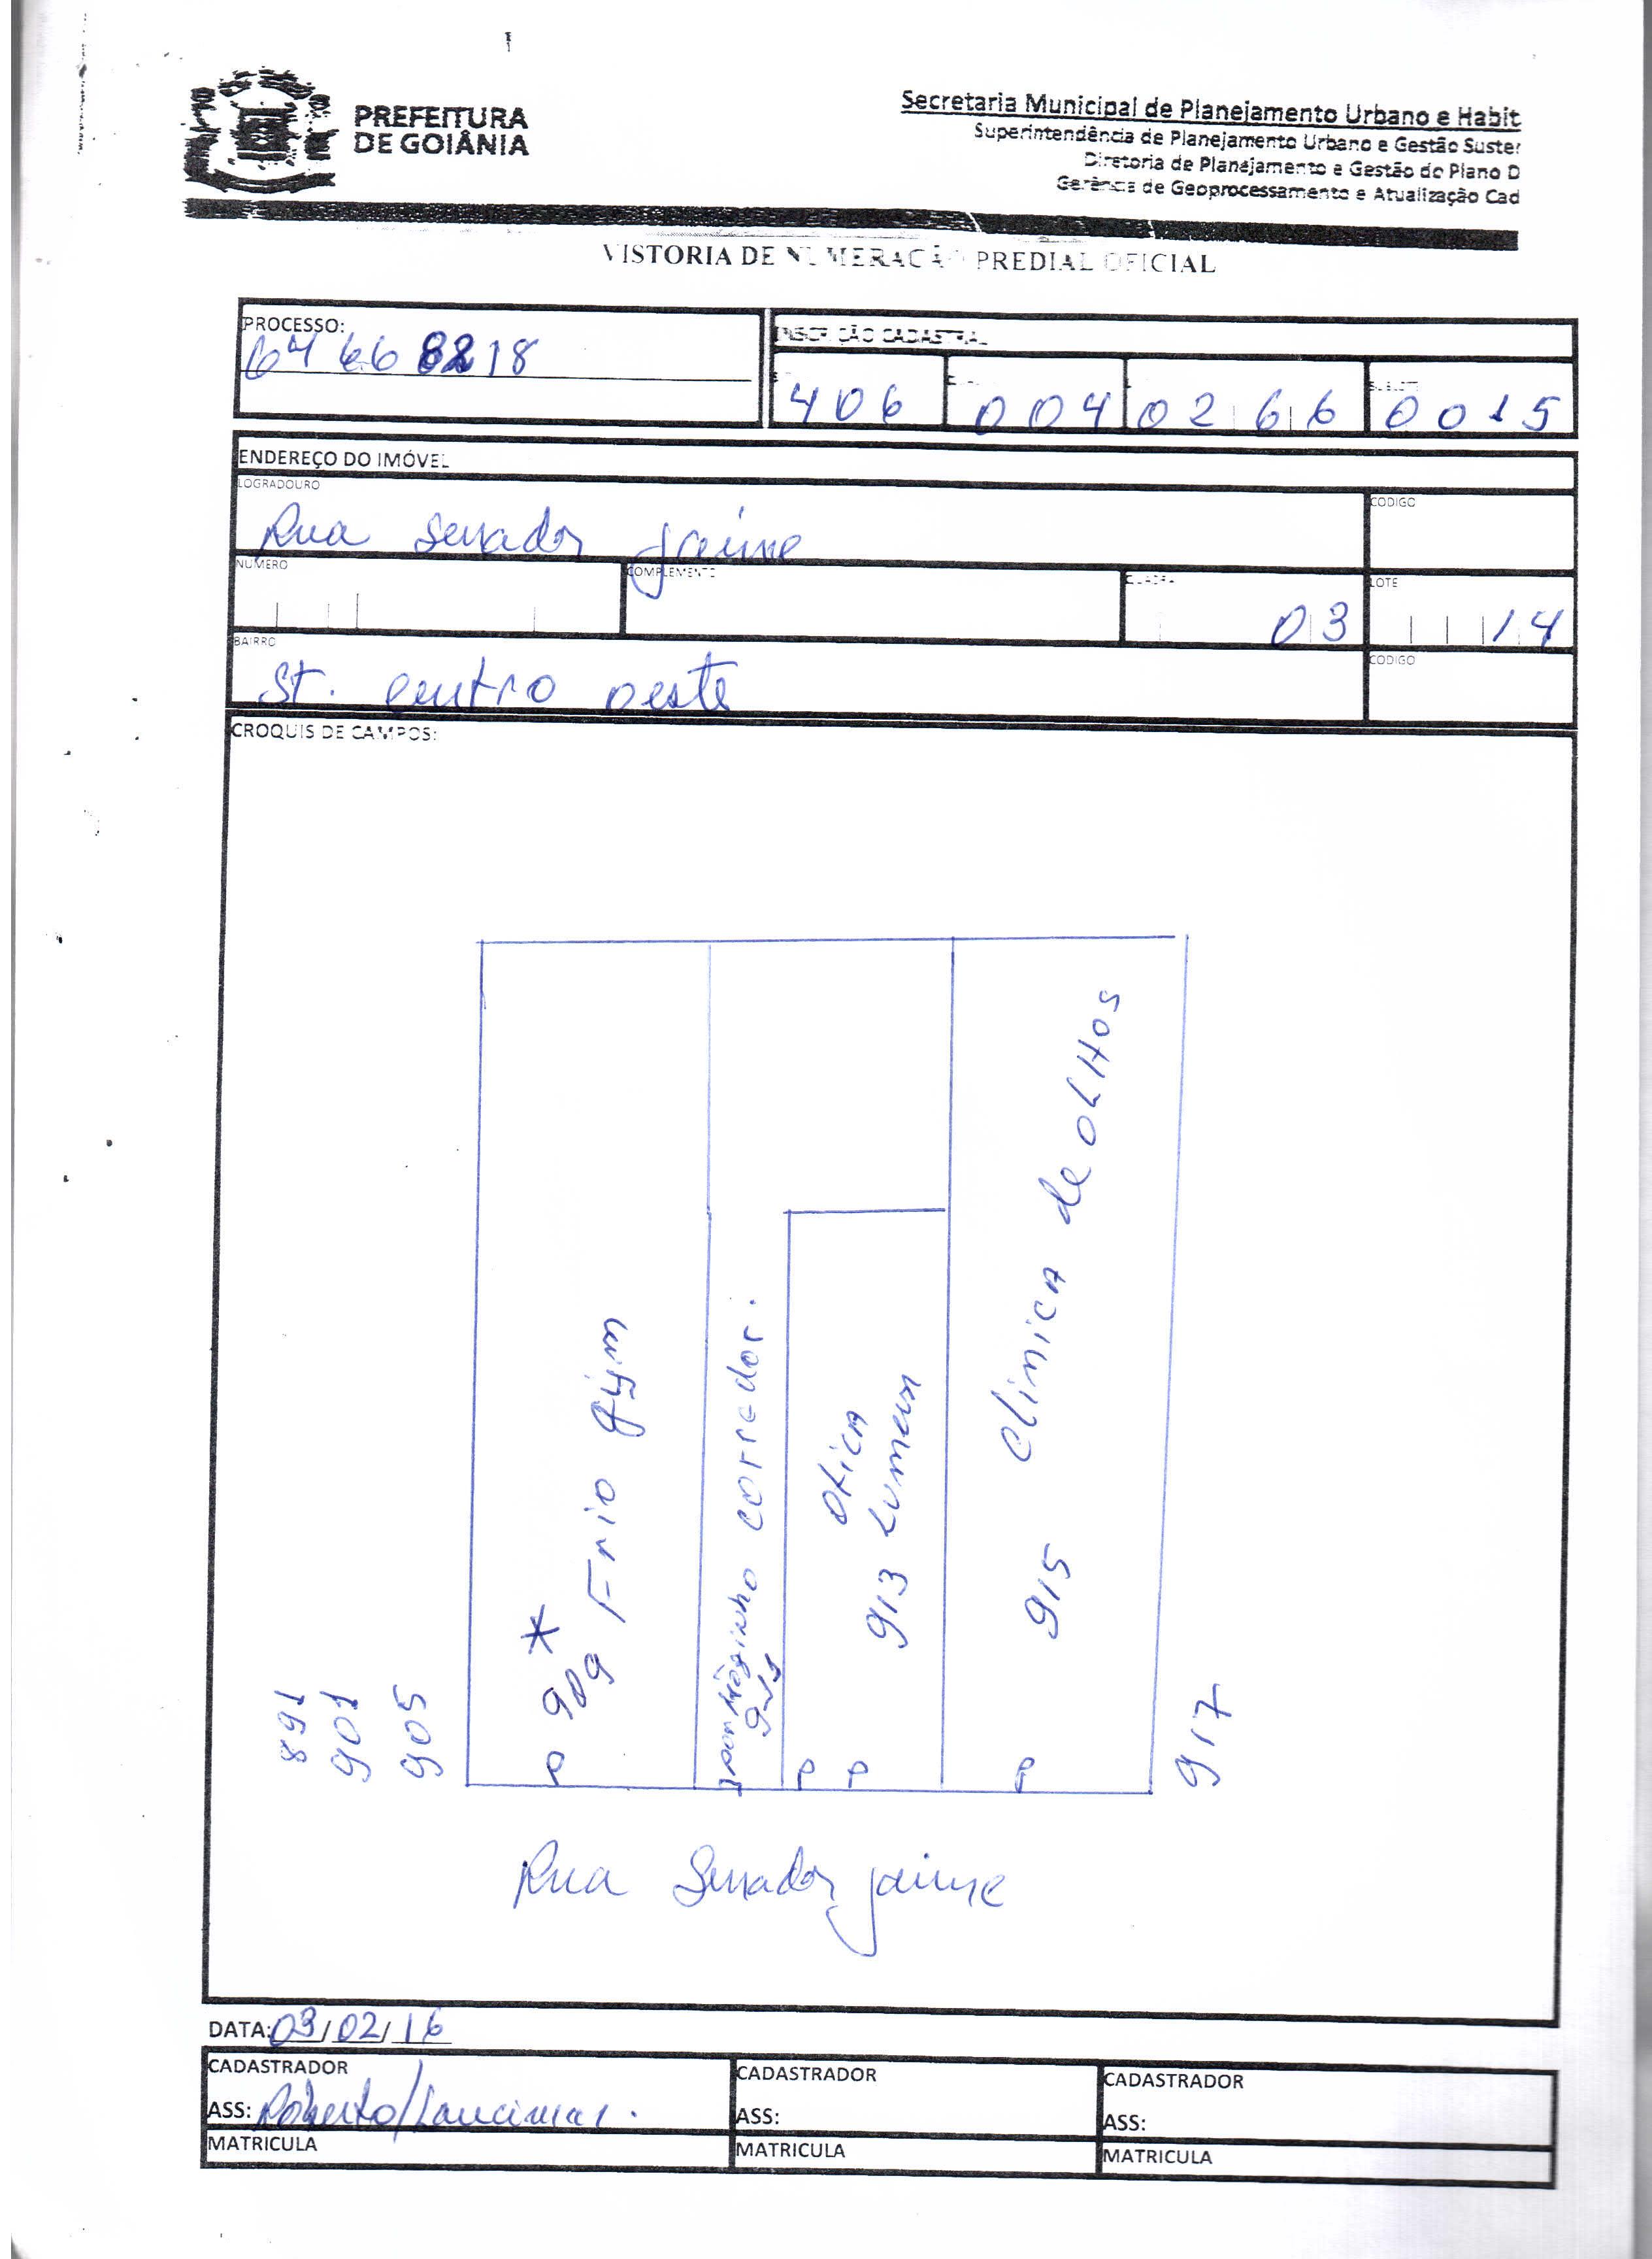 PREFEITURA
DE GOIÂNIA
Secretaria Municipal de Planejamento Urbano e Habit
Superintendência de Planejamento Urbano e Gestão Suster
Diretoria de Planejamento e Gestão do Plano D
Gerência de Geoprocessamento e Atualização Cad
VISTORIA DE NUMERAÇÃO PREDIAL OFICIAL
PROCESSO:
INSCRIÇÃO CADASTRAL
406 004 0266 0015
ENDEREÇO DO IMÓVEL
LOGRADOURO
CODIGO
Rua Senador Jaime
NUMERO
COMPLEMENTO
QUADRA
LOTE
03
14
BAIRRO
CODIGO
St. centro oeste
CROQUIS DE CAMPOS:
891
901
905
909 *
Frio gym
portãozinho corredor.
Otica
913 Lumen
915 Clinica de OLHOS
917
P P P P
Rua Senador Jaime
DATA: 03/02/16
CADASTRADOR
ASS: Roberto/
MATRICULA
CADASTRADOR
ASS:
MATRICULA
CADASTRADOR
ASS:
MATRICULA